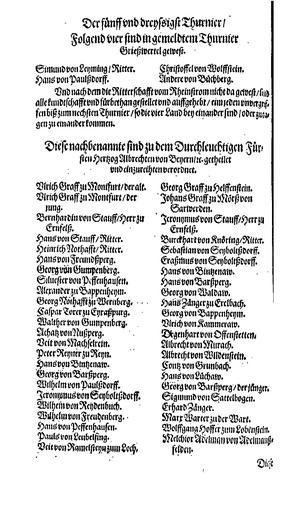 Der fünff vnd dreyssigst Thurnier/
Folgend vier sind in gemeldtem Thurnier
Grießwertel gewest.
Simund von Leyming/Ritter.
Hans von Paulßdorff.
Christoffel von Wolffstein.
Ander von Büchberg.
Vnd nach dem die Ritterschafft vom Rheinstrom nicht da gewest/sind
alle kundschafft vnd fürbethan gestellet vnd auffgehebt/ein jeden vnvergrif-
fen biß zum nechsten Thurnier/so die vier Land bey einander sind/oder
gen zu einander kommen.
Diese nachbenannte sind zu dem Durchleuchtigen Für-
sten Hertzog Albrechten von Beyern/ec. getheilet
vnd einzureithen verordnet.
Vlrich Graff zu Montfurt/der alt.
Vlrich Graff zu Montfurt/der
jung.
Bernhardin von Stauff/Herr zu
Ernfelß.
Hans von Stauff/Ritter.
Heinrich Nothafft/Ritter.
Hans von Fraundsperg.
Georg von Gumpenberg.
Siluester von Peffenhausen.
Alexander zu Bappenheym.
Georg Nothafft zu Wernberg.
Caspar Torer zu Eyraßpurg.
Walther von Gumpenberg.
Achatz von Nußperg.
Veit von Machselrein.
Peter Reyner zu Reyn.
Hans von Bintzenaw.
Georg von Barßperg.
Wilhelm von Paulßdorff.
Jeronymus von Seyboltßdorff.
Wilhelm von Reydenbuch.
Wilhelm von Freudenberg.
Hans von Peffenhausen.
Pauls von Leubelfing.
Veit von Ramelsteyn zum Loch.
Georg Graff zu Helffenstein.
Johans Graff zu Mörß von
Sarwerden.
Jeronymus von Stauff/Herr zu
Ernfelß.
Burckhart von Knöring/Ritter.
Sebastian von Seyboltßdorff.
Erasmus von Seyboltßdorff.
Hans von Bintzenaw.
Hans von Barßperg.
Georg von Waldaw.
Hans Zänger zu Erlbach.
Georg von Bappenheym.
Vlrich von Kammeraw.
Degenhart von Offenstetten.
Albrecht von Murach.
Albrecht von Wildenstein.
Contz von Grunbach.
Hans von Lüchaw.
Georg von Barßperg/der jünger.
Sigmund von Sattelbogen.
Erhard Zänger.
Marx Warter zu der Wart.
Wolffgang Hoffer zum Lobenstein.
Melchior Adelman von Adelmanß-
felden.
Diese